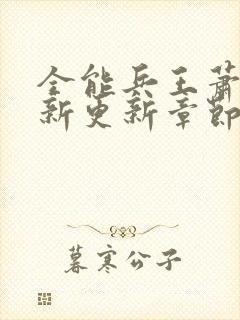 全能兵王萧
新更新章節
暮寒公子